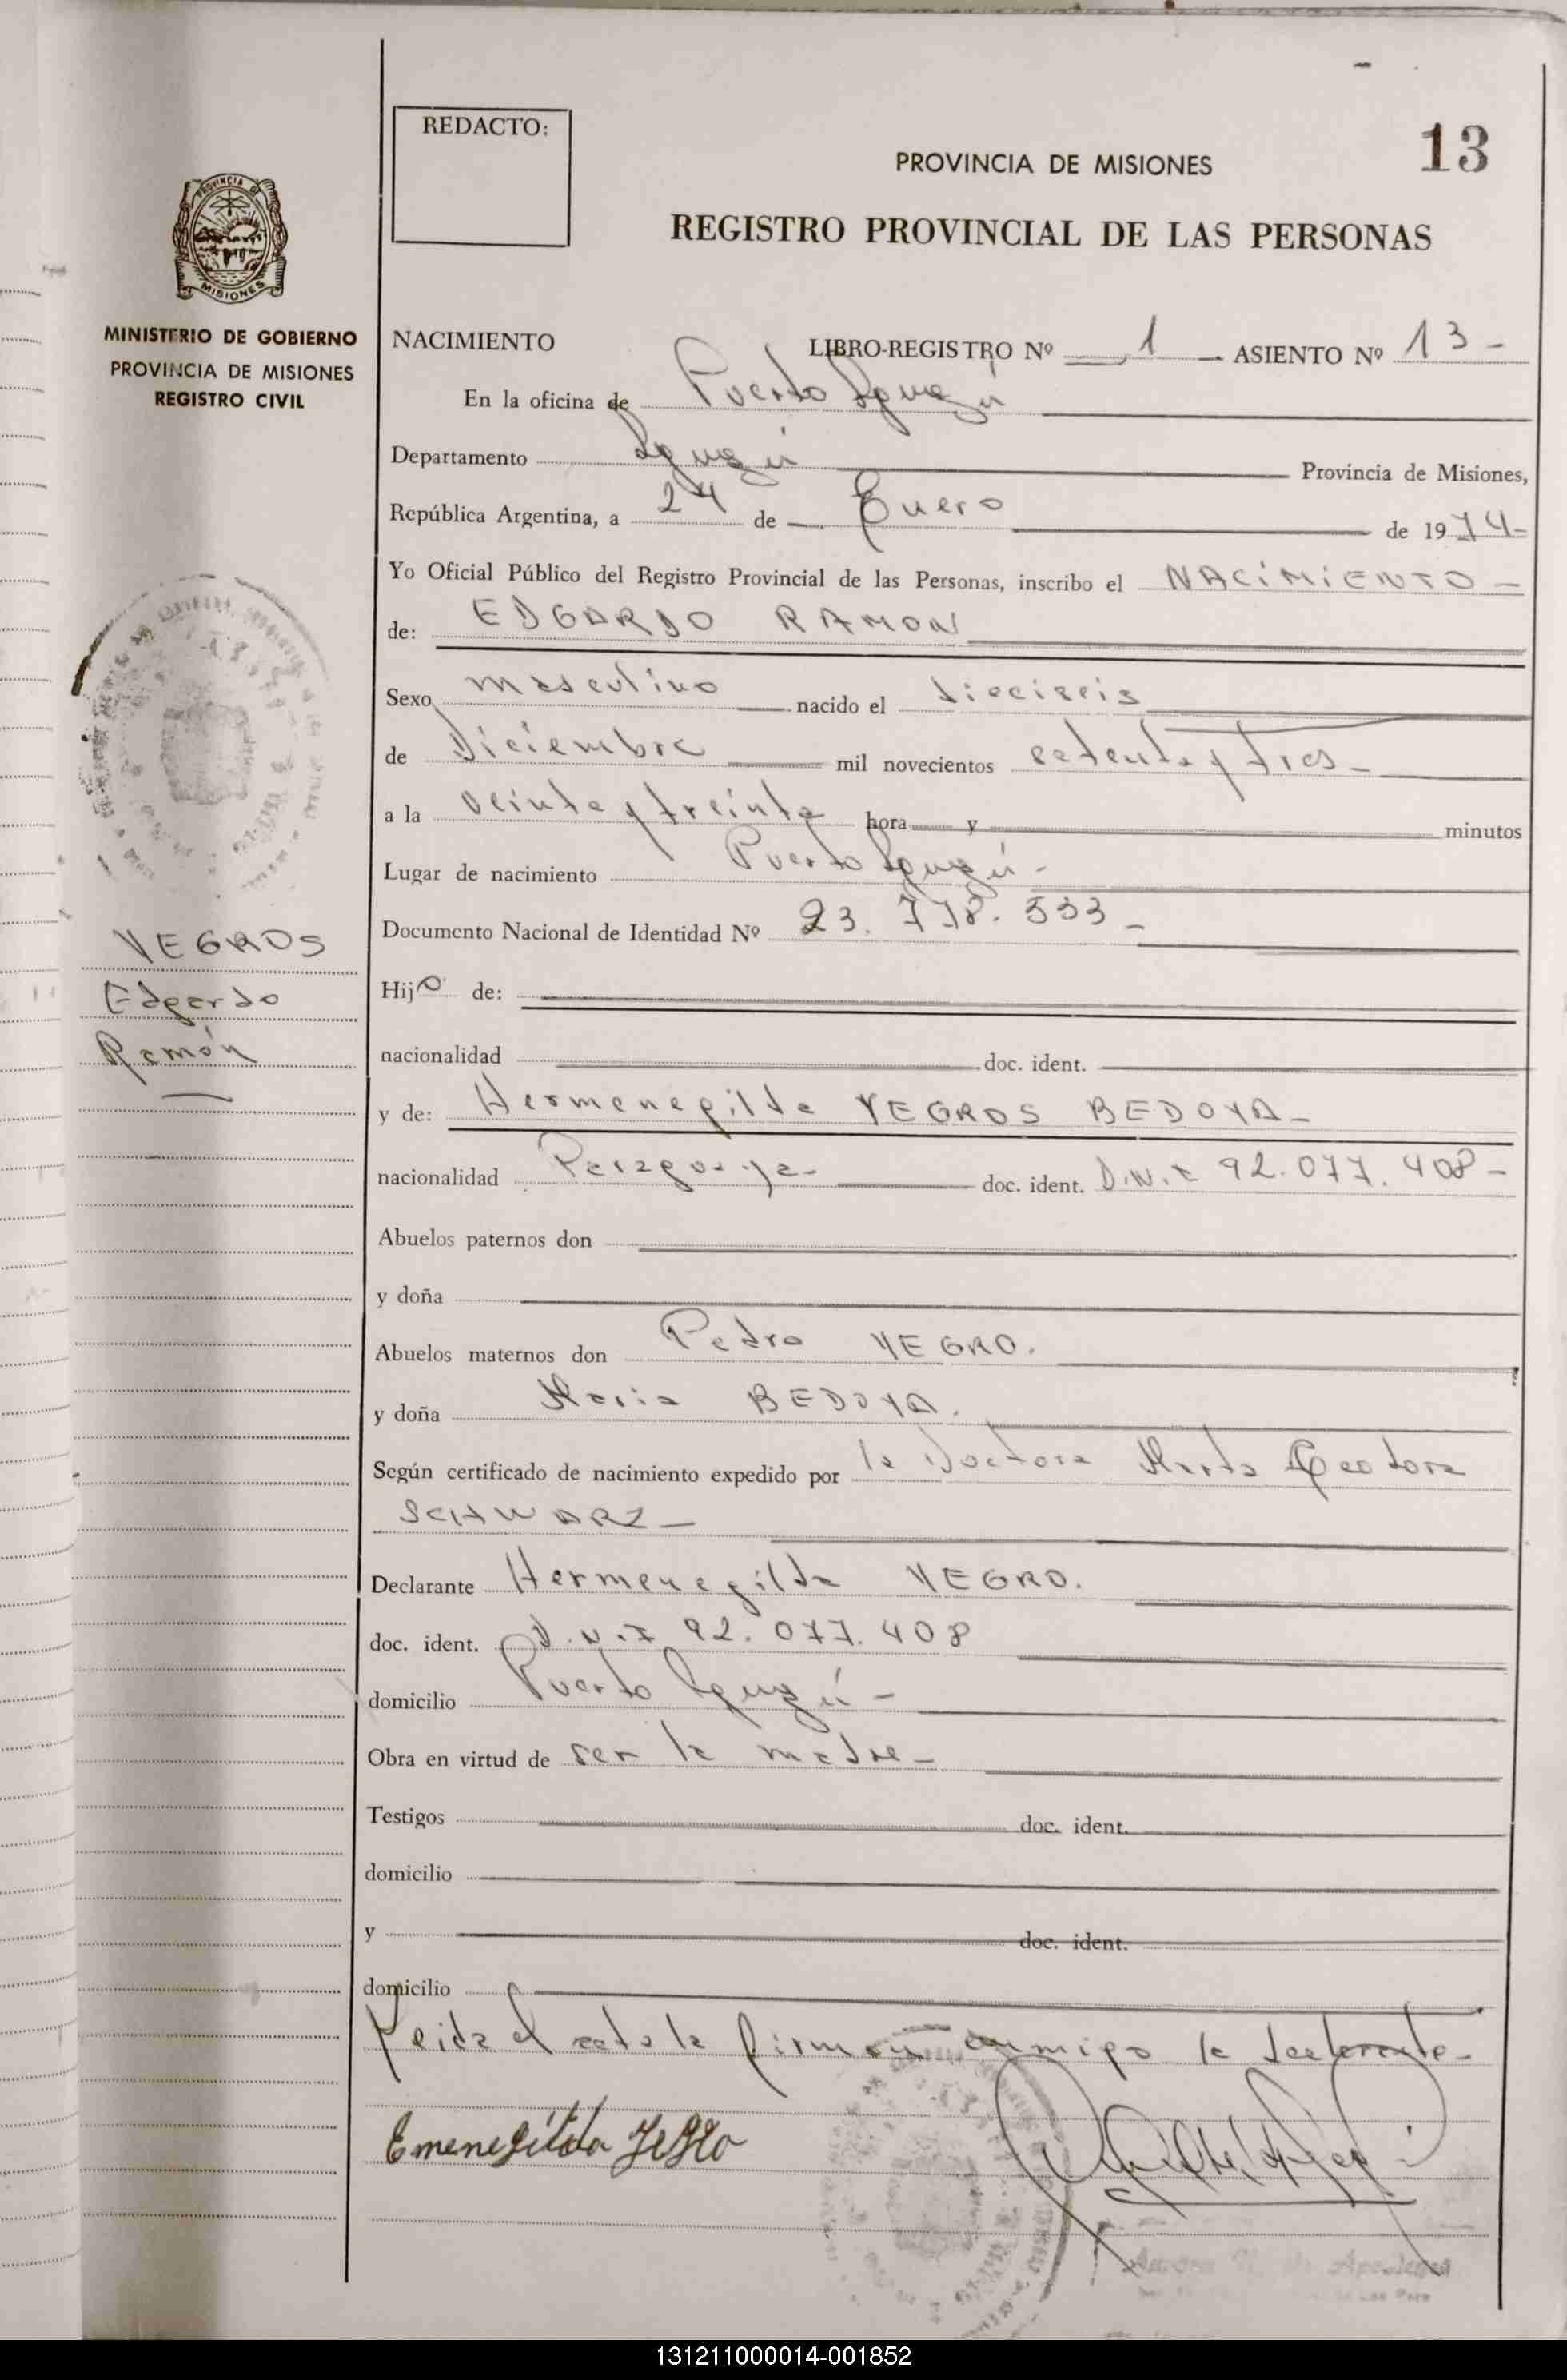 REDACTO:
PROVINCIA DE MISIONES
13
REGISTRO PROVINCIAL DE LAS PERSONAS
PROVINCIA DE MISIONES
MINISTERIO DE GOBIERNO
PROVINCIA DE MISIONES
REGISTRO CIVIL
YEGROS
Edgardo
Ramón
NACIMIENTO LIBRO-REGISTRO Nº 1 ASIENTO Nº 13-
En la oficina de Puerto Iguazú
Departamento Iguazú Provincia de Misiones,
República Argentina, a 24 de Enero de 1974-
Yo Oficial Público del Registro Provincial de las Personas, inscribo el NACIMIENTO-
de: EDGARDO RAMON
Sexo masculino nacido el dieciseis
de Diciembre mil novecientos setenta y tres-
a la veinte y treinta hora y minutos
Lugar de nacimiento Puerto Iguazú-
Documento Nacional de Identidad Nº 23.778.533-
Hijo de:
nacionalidad doc. ident.
y de: Hermenegilda YEGROS BEDOYA-
nacionalidad Paraguaya- doc. ident. D.N.I 92.077.408-
Abuelos paternos don
y doña
Abuelos maternos don Pedro YEGRO.
y doña Maria BEDOYA.
Según certificado de nacimiento expedido por la Doctora Marta Teodora
SCHWARZ-
Declarante Hermenegilda YEGRO.
doc. ident. D.N.I 92.077.408
domicilio Puerto Iguazú-
Obra en virtud de ser la madre-
Testigos doc. ident.
domicilio
y doc. ident.
domicilio
Leida el acta la firman conmigo la declarante-
Emenegilda Yegro
131211000014-001852